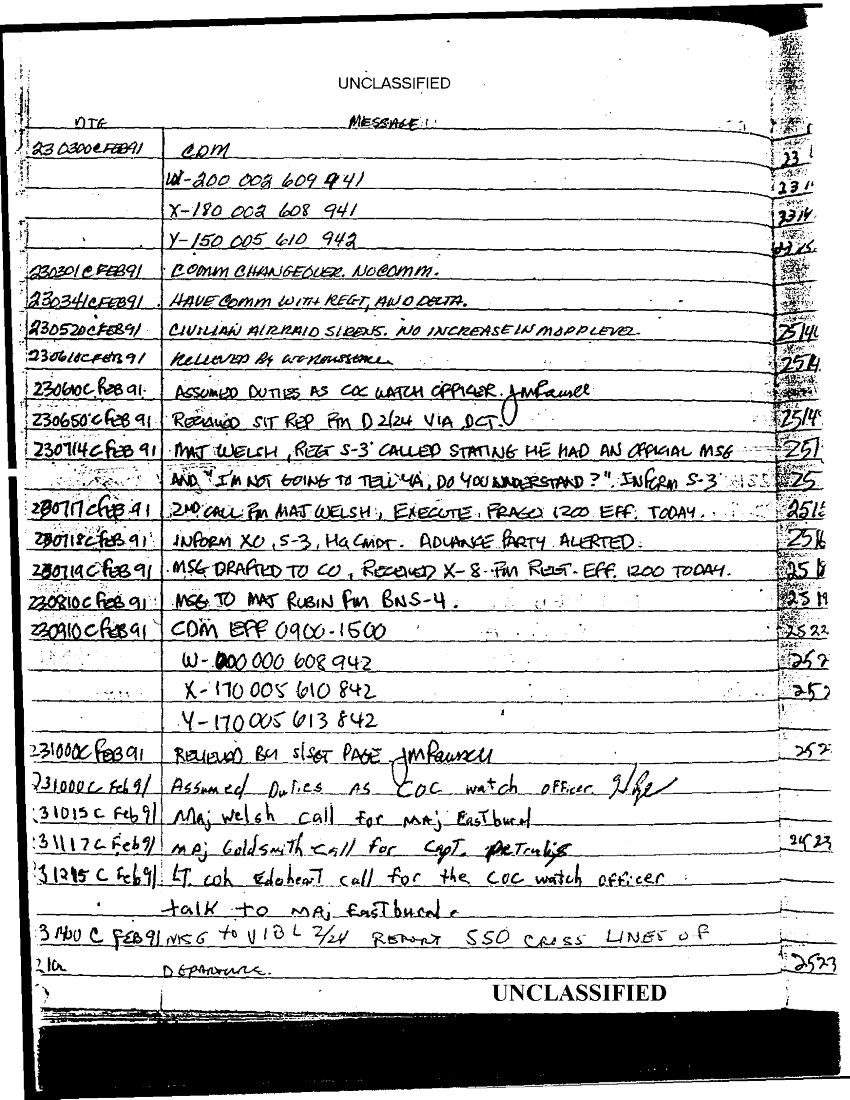 UNCLASSIFIED
DTG MESSAGE
230300CFEB91 CDM
W-200 002 609 941
X-180 002 608 941
Y-150 005 610 942
230301CFEB91 COMM CHANGEOVER. NO COMM.
230341CFEB91 HAVE COMM WITH REGT, AND DELTA.
230520CFEB91 CIVILIAN AIR RAID SIRENS. NO INCREASE IN MOPP LEVEL.
230610CFEB91 RELIEVED BY
230610C FEB 91 ASSUMED DUTIES AS COC WATCH OFFICER.
230650C FEB 91 RECEIVED SIT REP FM D 2/24 VIA DCT.
230714C FEB 91 MAJ WELSH, REGT S-3 CALLED STATING HE HAD AN OFFICIAL MSG
AND "I'M NOT GOING TO TELL YA, DO YOU UNDERSTAND?". INFORM S-3
230717C FEB 91 2ND CALL FM MAJ WELSH, EXECUTE, FRAGO 1200 EFF. TODAY.
230718C FEB 91 INFORM XO, S-3, HQ CMDT. ADVANCE PARTY ALERTED.
230719C FEB 91 MSG DRAFTED TO CO, RECEIVED X-8 FM REGT. EFF. 1200 TODAY.
230810C FEB 91 MSG TO MAJ RUBIN FM BN S-4.
230910C FEB 91 CDM EFF 0900-1500
W-000 000 608 942
X-170 005 610 842
Y-170 005 613 842
231000C FEB 91 RELIEVED BY S/SGT PAGE
231000C Feb 91 Assumed Duties AS COC watch officer
31015C Feb 91 Maj Welsh call for Maj Eastburn
31117C Feb 91 Maj Goldsmith call for Capt.
31215C Feb 91 LT. call for the COC watch officer
talk to Maj Eastburn.
FEB 91 MSG to 2/24 REPORT SSO CROSS LINES OF
DEPARTURE.
UNCLASSIFIED